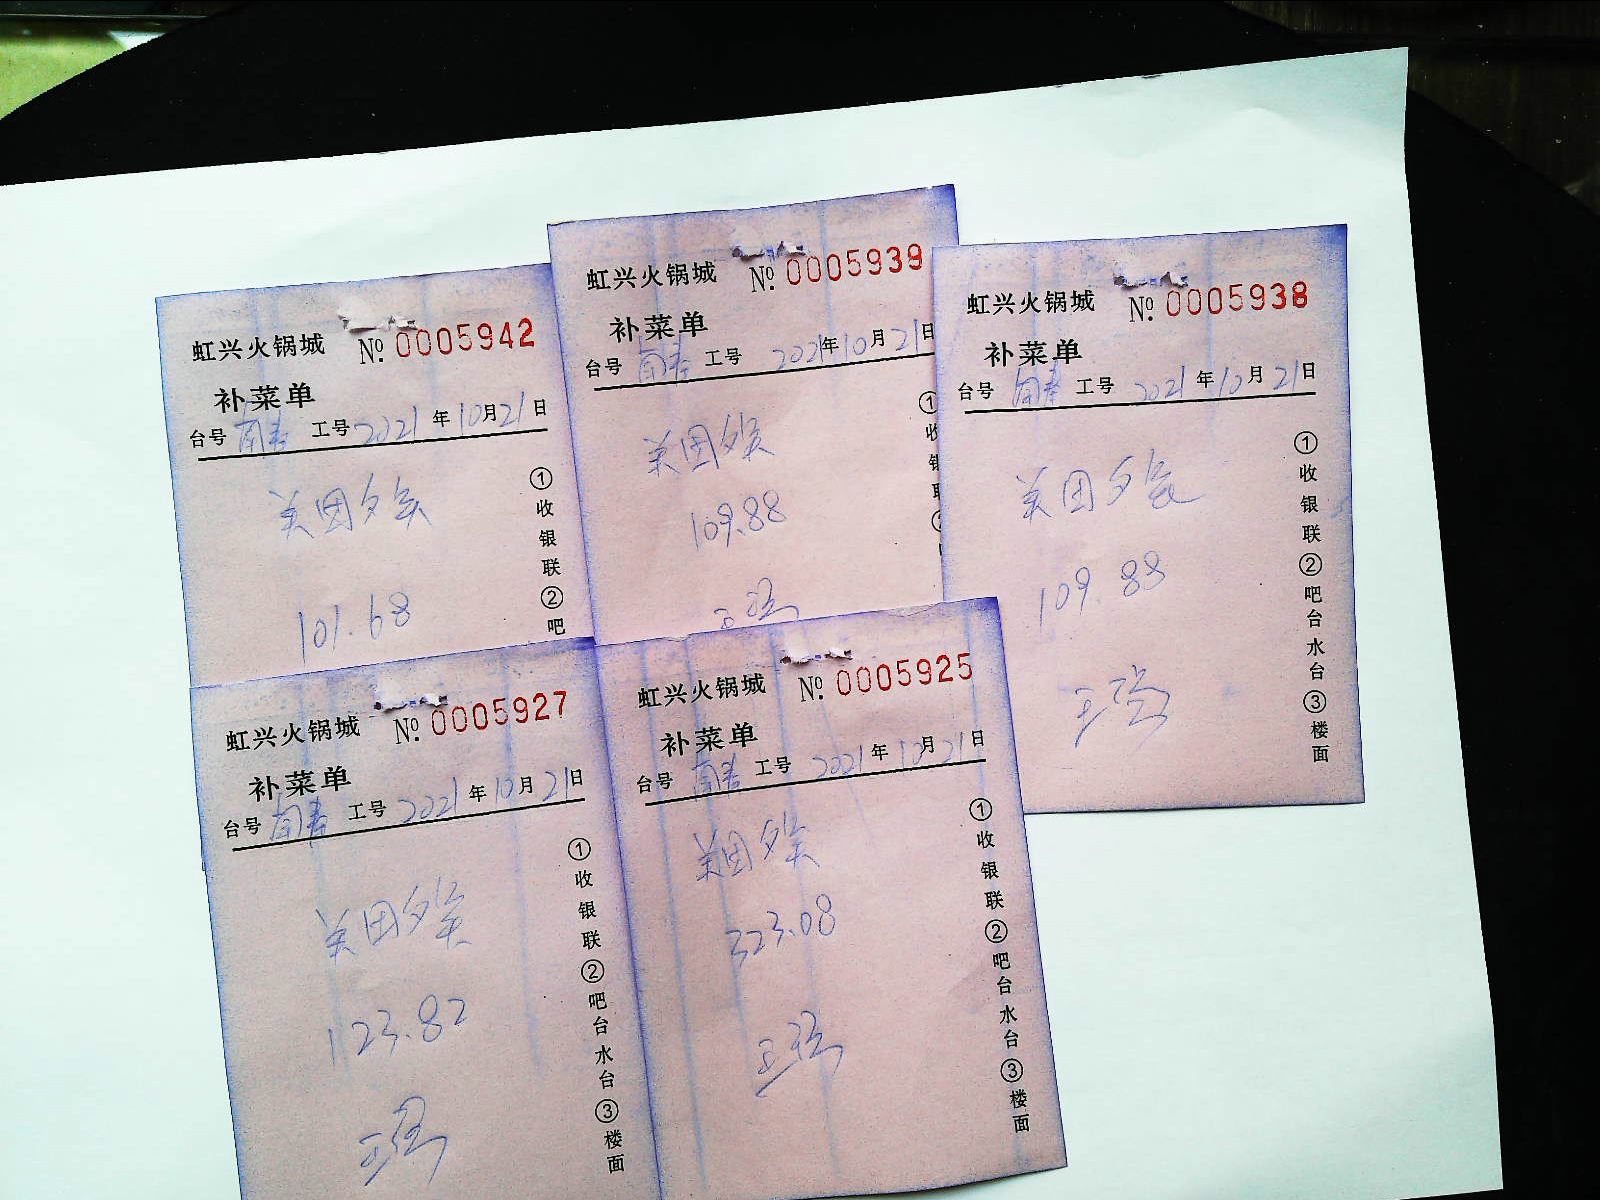 虹兴火锅城 № 0005942
补菜单
台号 南寿 工号 2021年10月21日
美团外卖
101.68
①收银联②吧
虹兴火锅城 № 0005939
补菜单
台号 南寿 工号 2021年10月21日
美团外卖
109.88
①收银联②
虹兴火锅城 № 0005938
补菜单
台号 南寿 工号 2021年10月21日
美团外卖
109.88
①收银联②吧台水台③楼面
虹兴火锅城 № 0005927
补菜单
台号 南寿 工号 2021年10月21日
美团外卖
123.82
①收银联②吧台水台③楼面
虹兴火锅城 № 0005925
补菜单
台号 南寿 工号 2021年10月21日
美团外卖
323.08
①收银联②吧台水台③楼面